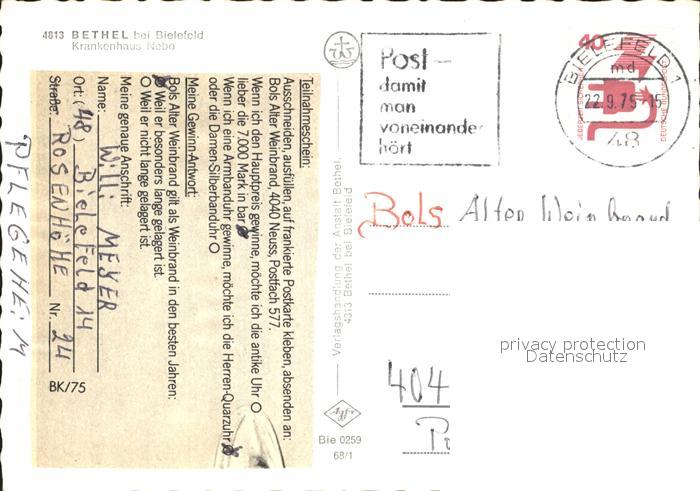 4813 BETHEL bei Bielefeld
Krankenhaus Nebo
Teilnahmeschein:
Ausschneiden, ausfüllen, auf frankierte Postkarte kleben, absenden an:
Bols Alter Weinbrand, 4040 Neuss, Postfach 577.
Wenn ich den Hauptpreis gewinne, möchte ich die antike Uhr O
lieber die 7.000 Mark in bar
Wenn ich eine Armbanduhr gewinne, möchte ich die Herren-Quarzuhr
oder die Damen-Silberbanduhr O
Meine Gewinn-Antwort:
Bols Alter Weinbrand gilt als Weinbrand in den besten Jahren:
Weil er besonders lange gelagert ist.
O Weil er nicht lange gelagert ist.
Meine genaue Anschrift:
Name: Willi MEYER
Ort: (48) Bielefeld 14
Straße: ROSENHÖHE Nr. 24
BK/75
PFLEGEHEIM
Verlagsausgabe der Anstalt Bethel
4813 Bethel bei Bielefeld
Bie 0259
68/1
Post –
damit
man
voneinander
hört
40
BIELEFELD 1
md
22.9.75-16
48
Bols Alter Weinbrand
404
privacy protection
Datenschutz